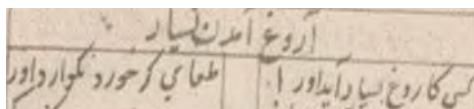 آروغ آمدن بسیار
کسی کاروغ بسیار آید اورا
طعامی کر خورد نگوارد اور